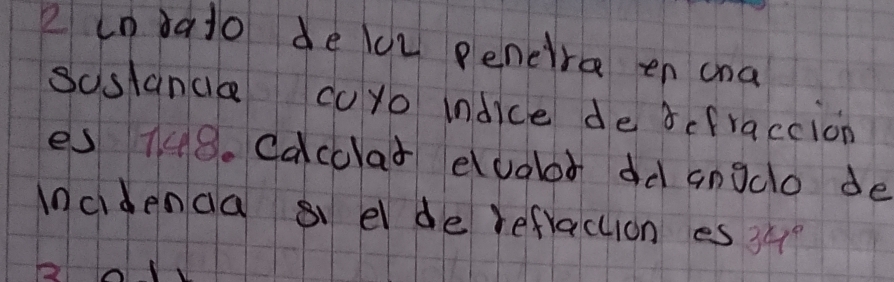 2 un rayo de luz penetra en una
sustancia cuyo indice de refracción
es 1.48. calcular el valor del angulo de
incidencia si el de refraccion es 34°
3